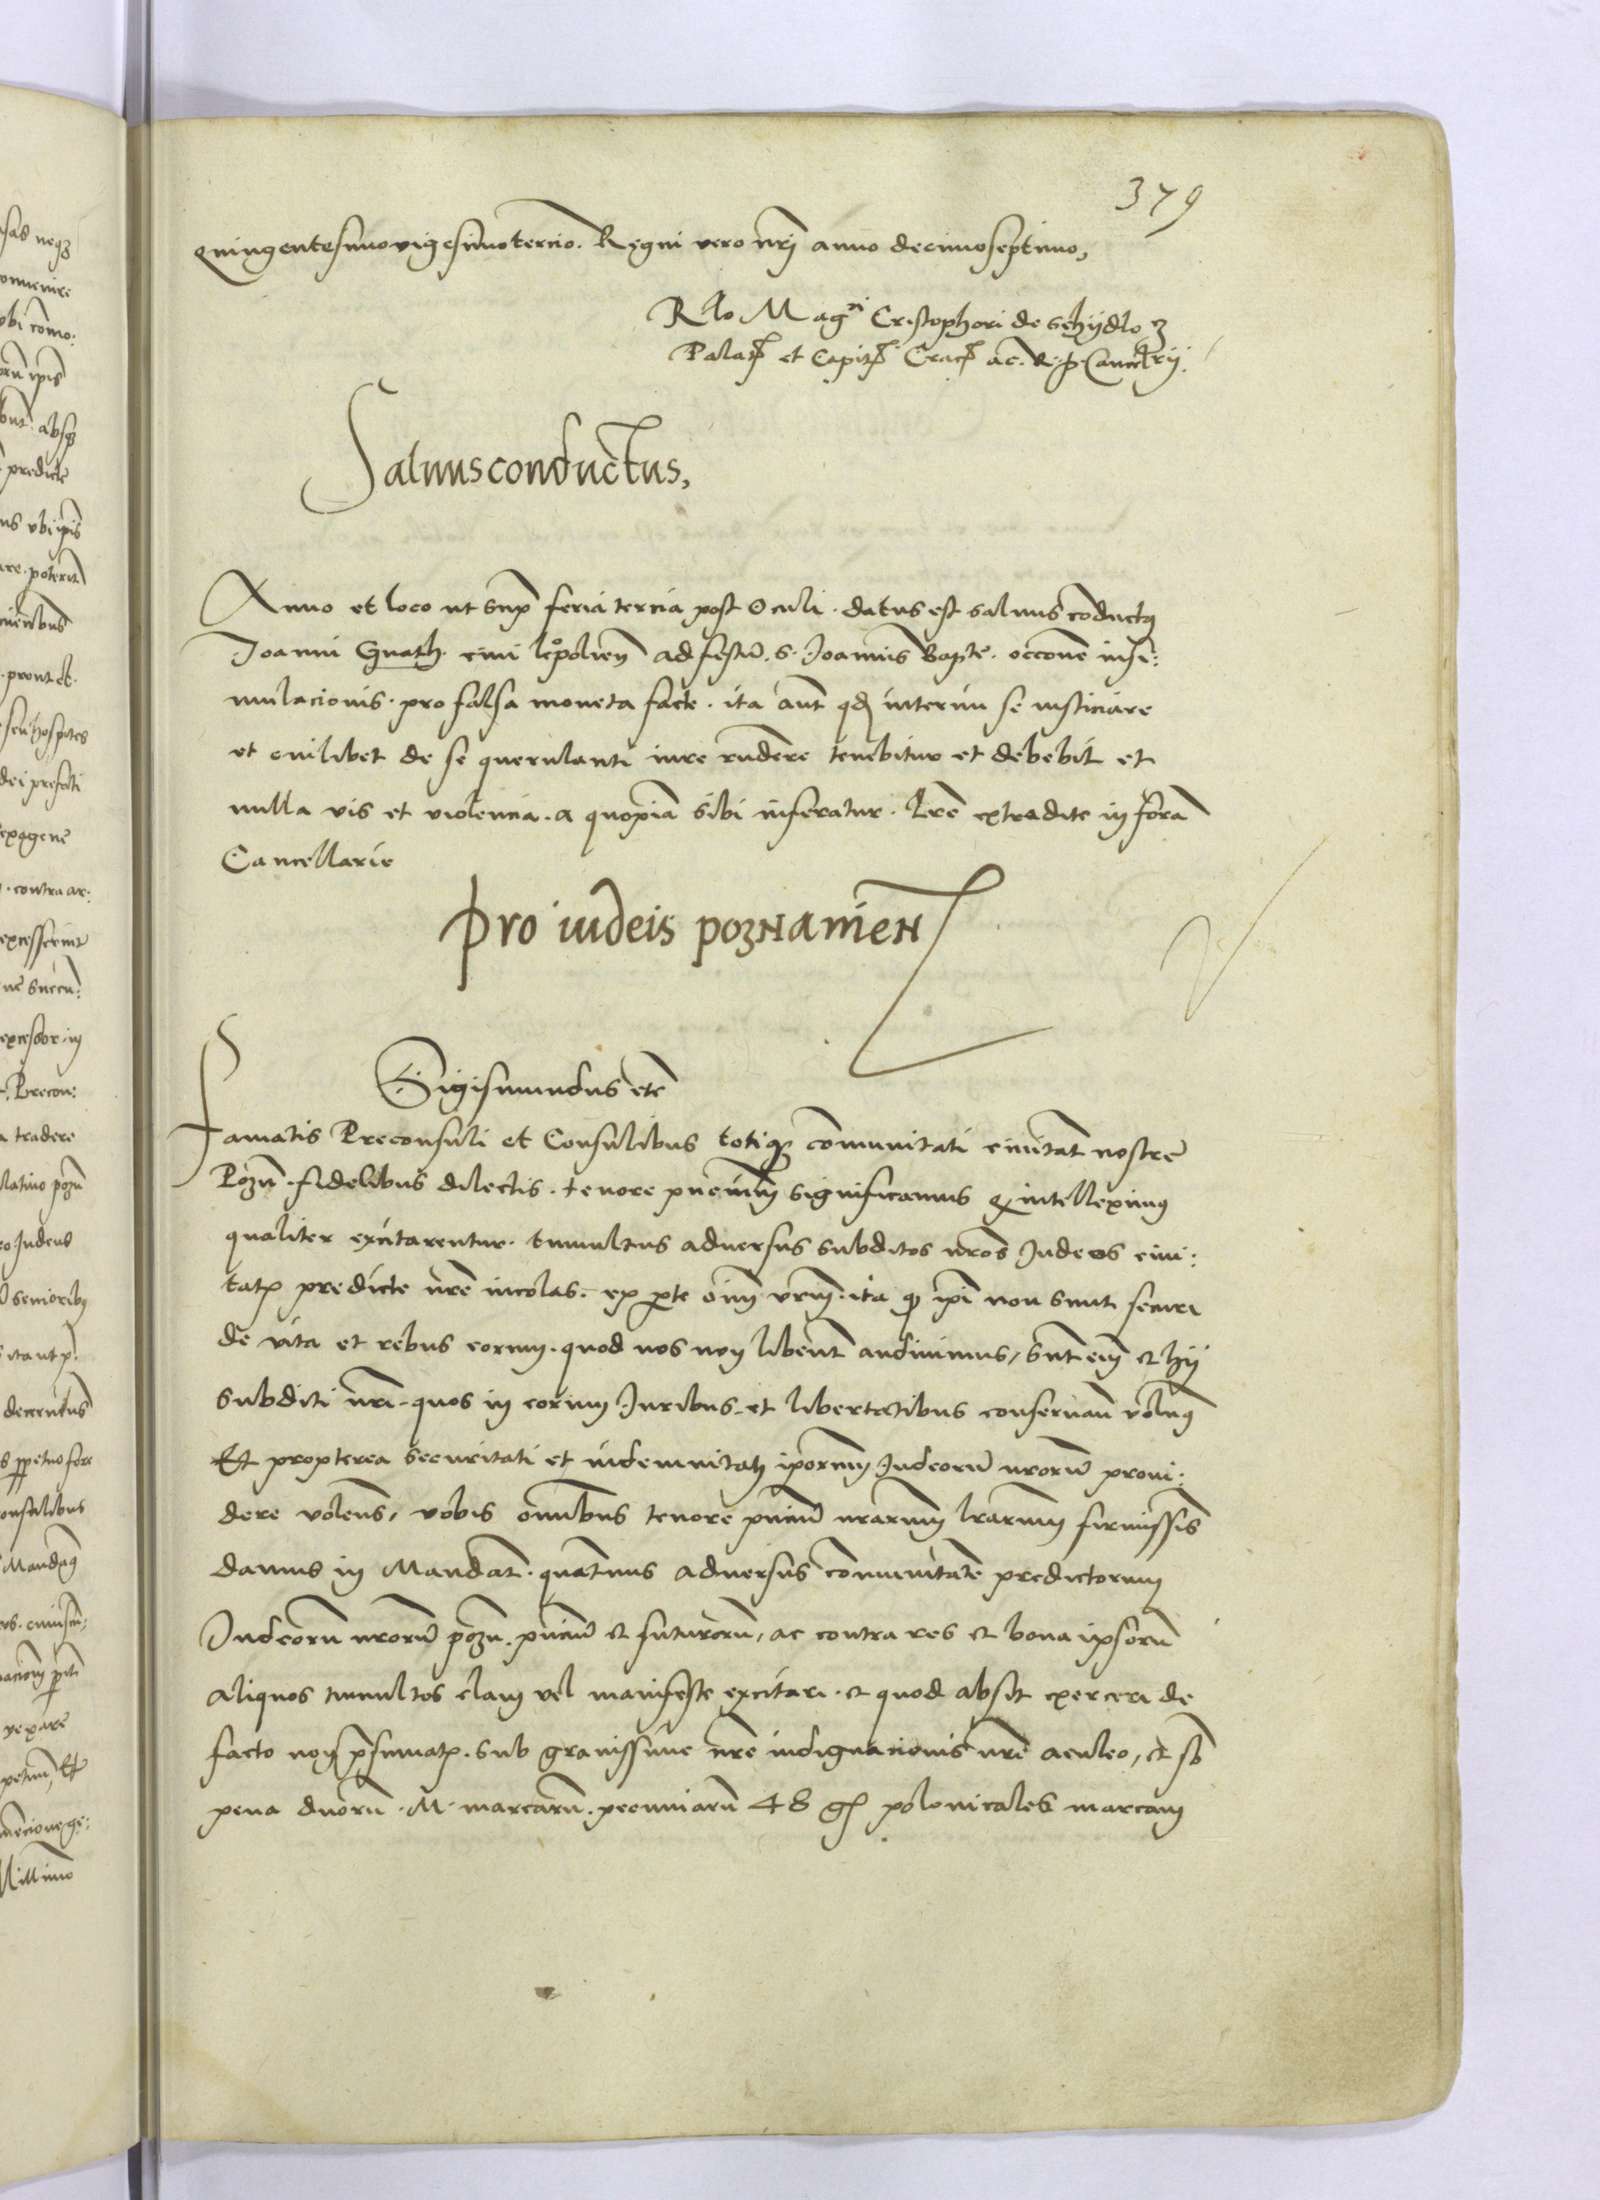 379
quingentesimovigesimotercio. Regni vero nrj anno decimoseptimo,
Rlo Magci Cristophori de schijdlo
Palat et Capit Crac ac. R. p Cancrij.
Saluusconductus,
Anno et loco ut sup feria tercia post Oculi. datus est saluus coductus
Joanni Gnath. ciui leopolien ad festu. s. Joannis Bapte. occone insi:
mulacionis. pro falsa moneta facte. ita aut qd interim se iusticiare
et cuilibet de se querulanti iure rndere tenebitur et debebit et
nulla vis et violencia. a quopia sibi inferatur. Lre extradite in fora
Cancellarie
Pro iudeis poznanien
Sigismundus etc
Famatis Preconsuli et Consulibus totique comunitati ciuitat nostre
Pozn. fidelibus dilectis. tenore pnciu significamus q intelleximus
qualiter excitarentur. tumultus aduersus subditos nros Judeos ciui:
tatis predicte nre incolas. ex pte oim vrm. ita q ipi non sunt securi
de vita et rebus eorum. quod nos non libent audiuimus, sunt eim et hij
subditi nri. quos in eorum Juribus. et libertatibus conseruari volumus
Et propterea securitati et indemnitati iporum Judeoru nroru proui:
dere volens, vobis omnibus tenore pnciu nrarum lrarum firmissis
damus in Mandat. quatenus aduersus comunitate predictorum
Judeoru nroru pozn. pnciu et futuroru, ac contra res et bona ipsoru
aliquos tumultos clam vel manifeste excitari. et quod absit exerceri de
facto non psumatis. sub grauissime nre indignacionis nre aculeo, et sb
pena duoru. M. marcaru. pecuniaru 48 gs polonicales marcam